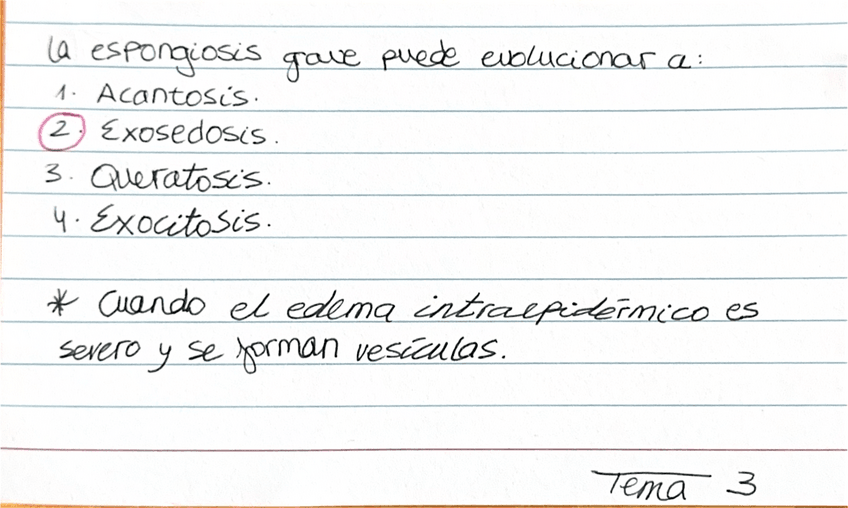 la espongiosis grave puede evolucionar a:
1. Acantosis.
2. Exosedosis.
3. Queratosis.
4. Exocitosis.
* Cuando el edema intraepidérmico es
severo y se forman vesículas.
Tema 3